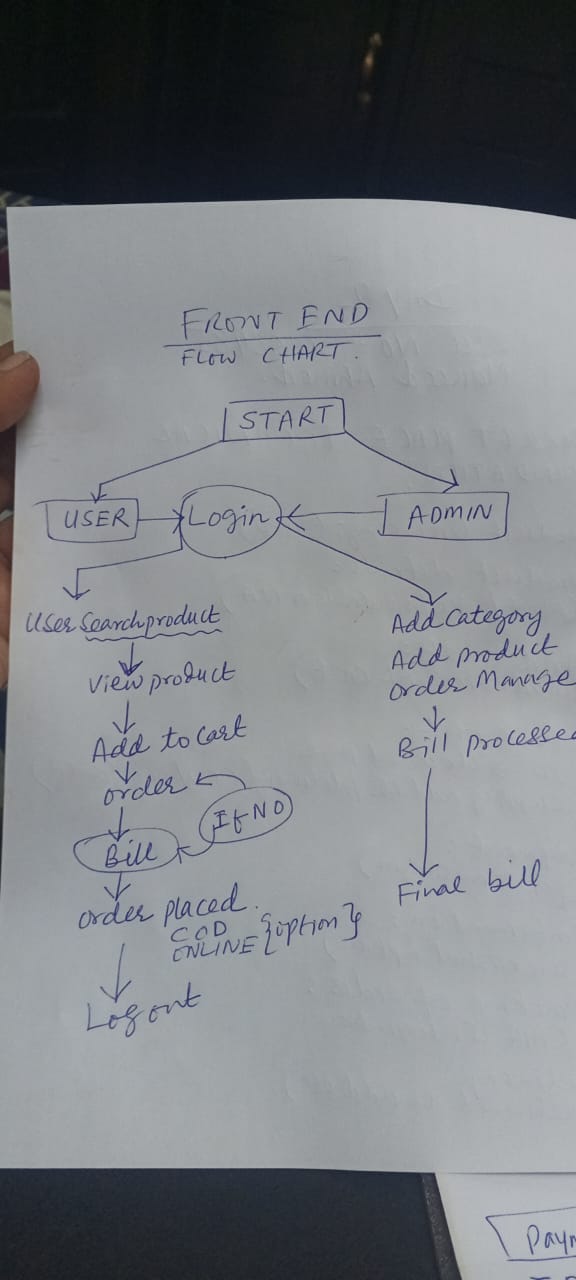 FRONT END
FLOW CHART.
START
USER
Login
ADMIN
User Search product
View product
Add to cart
order
If NO
Bill
order placed.
COD
ONLINE {option}
Logout
Add Category
Add product
order Manage
Bill processe
Final bill